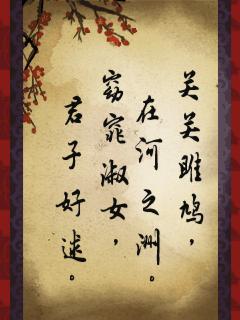 关关雎鸠，
在河之洲。
窈窕淑女，
君子好逑。